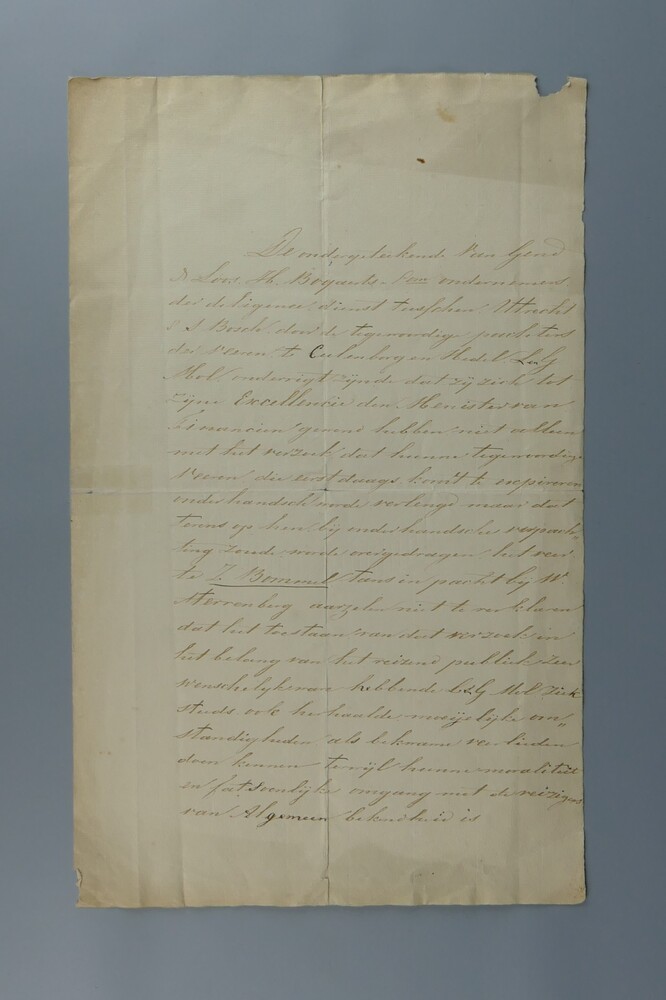 De ondergeteekende Van Gend
& Loos. H. Bogaerts. ondernemers
der diligence dienst tusschen Utrecht
& s Bosch, door de tegenwoordige pachters
der veeren te Culenborg en Hedel L & G
Mol onderrigt zijnde dat zij zich tot
zijne Excellencie den Menister van
Financien gewend hebben niet alleen
met het verzoek dat hunne tegenwoordige
veeren die eerstdaags komt te expireren
onderhandsch worde verlengd maar dat
tevens op hen bij onderhandsche verpach„
ting zoude worde overgedragen het veer
te Z. Bommel thans in pacht bij W.
Sterrenberg aarzelen niet te verklaren
dat het toestaan van dat verzoek in
het belang van het reizend publiek zeer
wenschelijk ware hebbende L & G Mol zich
steeds ook herhaalde moeijelijke om„
standigheden als bekwame veerlieden
doen kennen terwijl hunne moraliteit
en fatsoenlijke omgang met de reizigers
van Algemeen bekendheid is